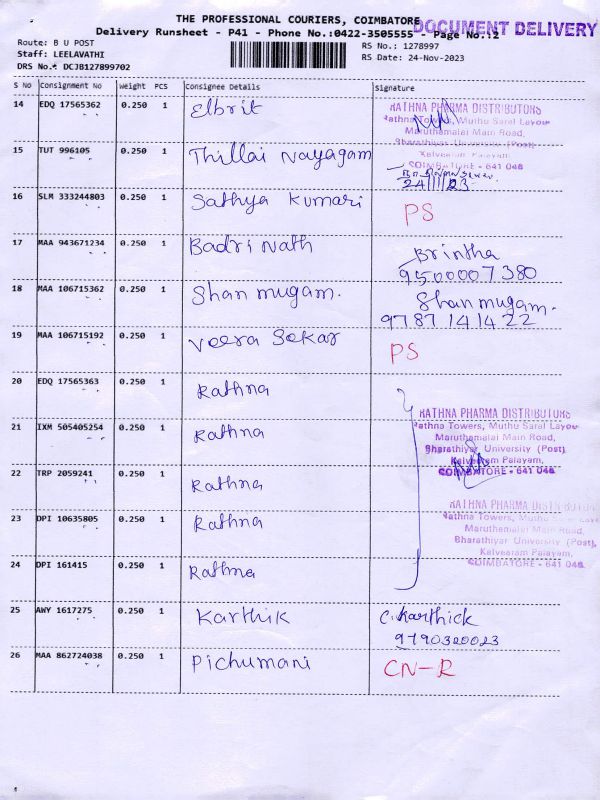 THE PROFESSIONAL COURIERS, COIMBATORE
DOCUMENT DELIVERY
Delivery Runsheet - P41 - Phone No.:0422-3505555 - Page No.:2
Route: B U POST
Staff: LEELAVATHI
DRS No.: DCJB127899702
RS No.: 1278997
RS Date: 24-Nov-2023
S No Consignment No Weight PCS Consignee Details Signature
14 EDQ 17565362 0.250 1 Elbrit
RATHNA PHARMA DISTRIBUTORS
Rathna Towers, Muthu Saral Layout
Maruthamalai Main Road,
Bharathiyar University (Post)
Kalveeram Palayam,
COIMBATORE - 641 046
15 TUT 996105 0.250 1 Thillai Nayagam
24/11/23
16 SLM 333244803 0.250 1 Sathya Kumari PS
17 MAA 943671234 0.250 1 Badri Nath Brintha
9500007380
18 MAA 106715362 0.250 1 Shan mugam. Shan mugam.
9787141422
19 MAA 106715192 0.250 1 Veera Sekar PS
20 EDQ 17565363 0.250 1 Rathna
21 IXM 505405254 0.250 1 Rathna
RATHNA PHARMA DISTRIBUTORS
Rathna Towers, Muthu Saral Layout
Maruthamalai Main Road,
Bharathiyar University (Post)
Kalveeram Palayam,
COIMBATORE - 641 046
22 TRP 2059241 0.250 1 Rathna
23 DPI 10635805 0.250 1 Rathna
RATHNA PHARMA DISTRIBUTORS
Rathna Towers, Muthu Saral Layout
Maruthamalai Main Road,
Bharathiyar University (Post)
Kalveeram Palayam,
COIMBATORE - 641 046
24 DPI 161415 0.250 1 Rathna
25 AWY 1617275 0.250 1 Karthik C. Karthick
9790320023
26 MAA 862724038 0.250 1 Pichumani CN-R